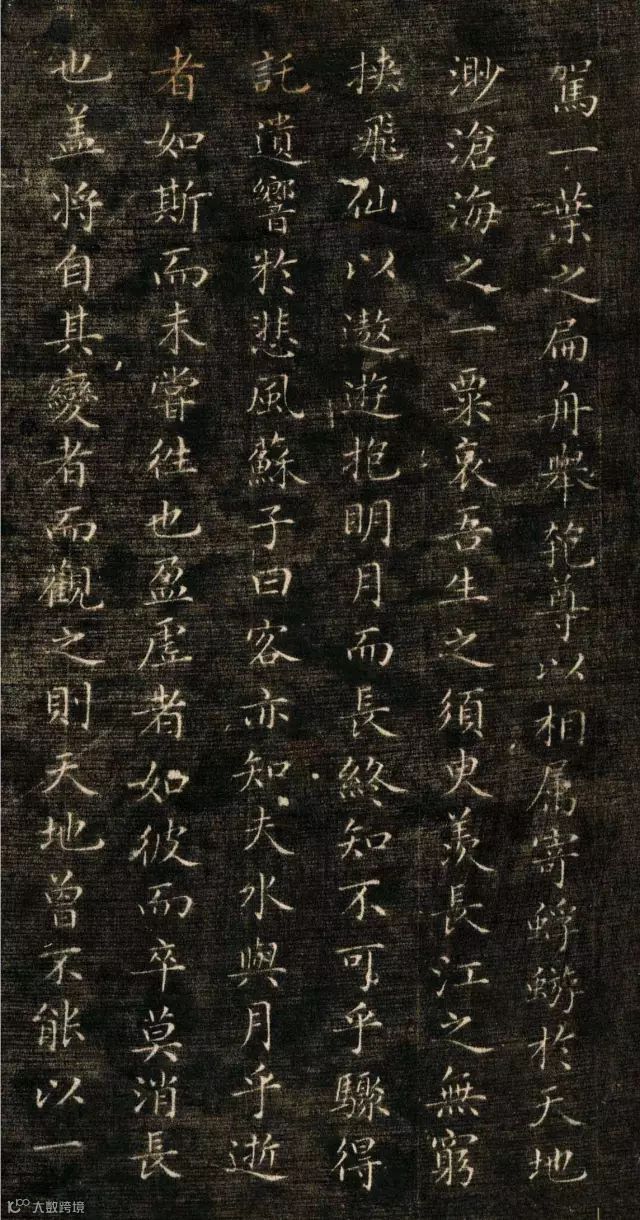 駕一葉之扁舟舉匏尊以相屬寄蜉蝣於天地
渺滄海之一粟哀吾生之須臾羨長江之無窮
挾飛仙以遨遊抱明月而長終知不可乎驟得
託遺響於悲風蘇子曰客亦知夫水與月乎逝
者如斯而未嘗往也盈虛者如彼而卒莫消長
也盖將自其變者而觀之則天地曾不能以一
大数跨境